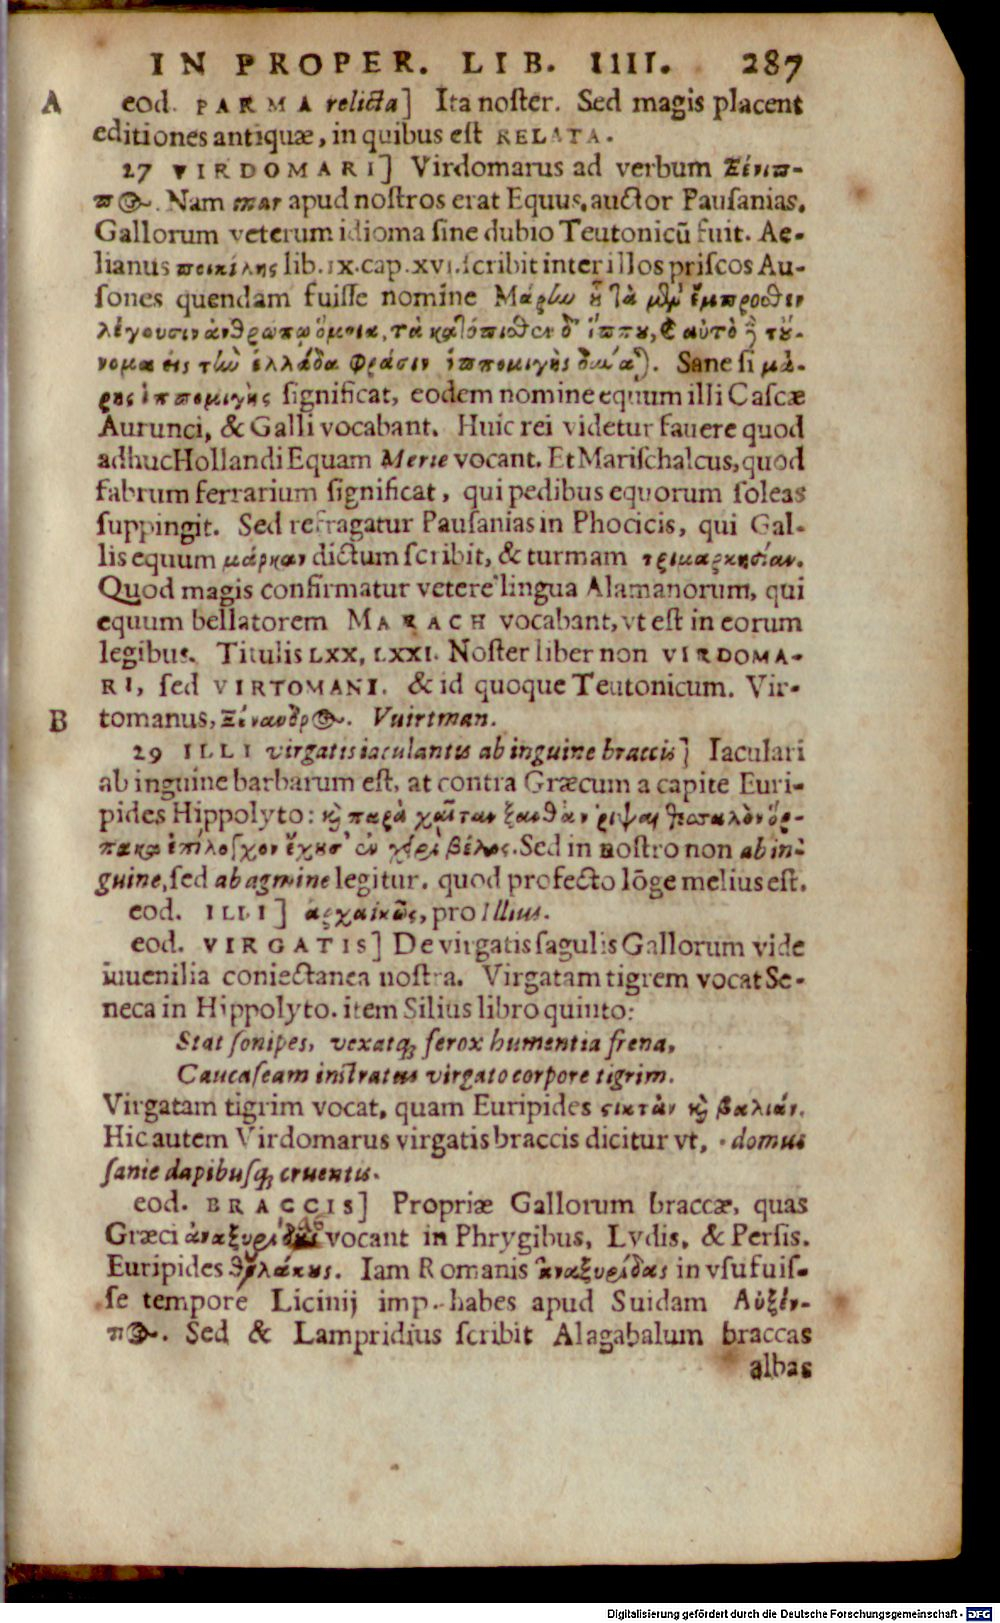 IN PROPER. LIB. IIII. 287
A eod. PARMA relicta] Ita noſter. Sed magis placent
editiones antiquæ, in quibus eſt RELATA.
27 VIRDOMARI] Virdomarus ad verbum Ξένιπ-
πος. Nam mar apud noſtros erat Equus, auctor Pauſanias.
Gallorum veterum idioma ſine dubio Teutonicū fuit. Ae-
lianus ποικίλης lib. IX. cap. XVI. ſcribit inter illos priſcos Au-
ſones quendam fuiſſe nomine Μάρἰω ᾧ τὰ μὲν ἔμπροσθεν
λέγουσιν ἀνθρώπῳ ὅμοια, τὰ κατόπισθεν δ' ἵππου, καὶ αὐτὸ ἢ τού-
νομα εἰς τὼ ἑλλάδα φράσιν ἱππομιγὴς δύναται. Sane ſi μά-
ρης ἱππομιγὴς ſignificat, eodem nomine equum illi Caſcæ
Aurunci, & Galli vocabant. Huic rei videtur fauere quod
adhuc Hollandi Equam Merie vocant. Et Mariſchalcus, quod
fabrum ferrarium ſignificat, qui pedibus equorum ſoleas
ſuppingit. Sed refragatur Pauſanias in Phocicis, qui Gal-
lis equum μάρκαν dictum ſcribit, & turmam τριμαρκησίαν.
Quod magis confirmatur vetere lingua Alamanorum, qui
equum bellatorem MARACH vocabant, vt eſt in eorum
legibus. Titulis LXX, LXXI. Noſter liber non VIRDOMA-
RI, ſed VIRTOMANI. & id quoque Teutonicum. Vir-
B tomanus, Ξένανδρος. Vuirtman.
29 ILLI virgatis iaculantis ab inguine braccis] Iaculari
ab inguine barbarum eſt, at contra Græcum a capite Euri-
pides Hippolyto: καὶ παρὰ χαῖταν ξανθὰν ῥίψαι θεσσαλὸν ὅρ-
πακα ἐπίλογχον ἔχουσ' ἐν χειρὶ βέλος. Sed in noſtro non ab in-
guine, ſed ab agmine legitur. quod profecto lōge melius eſt.
eod. ILLI] ἀρχαϊκῶς, pro Illius.
eod. VIRGATIS] De virgatis ſagulis Gallorum vide
iuuenilia coniectanea noſtra. Virgatam tigrem vocat Se-
neca in Hippolyto. item Silius libro quinto:
Stat ſonipes, vexatq; ferox humentia frena,
Caucaſeam inſtratus virgato corpore tigrim.
Virgatam tigrim vocat, quam Euripides στικτὰν καὶ βαλιάν.
Hic autem Virdomarus virgatis braccis dicitur vt, domus
ſanie dapibuſq; cruentis.
eod. BRACCIS] Propriæ Gallorum braccæ, quas
Græci ἀναξυρίδας vocant in Phrygibus, Lydis, & Perſis.
Euripides θυλάκους. Iam Romanis ἀναξυρίδας in vſu fuiſ-
ſe tempore Licinij imp. habes apud Suidam Αὐξέν-
πος. Sed & Lampridius ſcribit Alagabalum braccas
albas
Digitalisierung gefördert durch die Deutsche Forschungsgemeinschaft - DFG